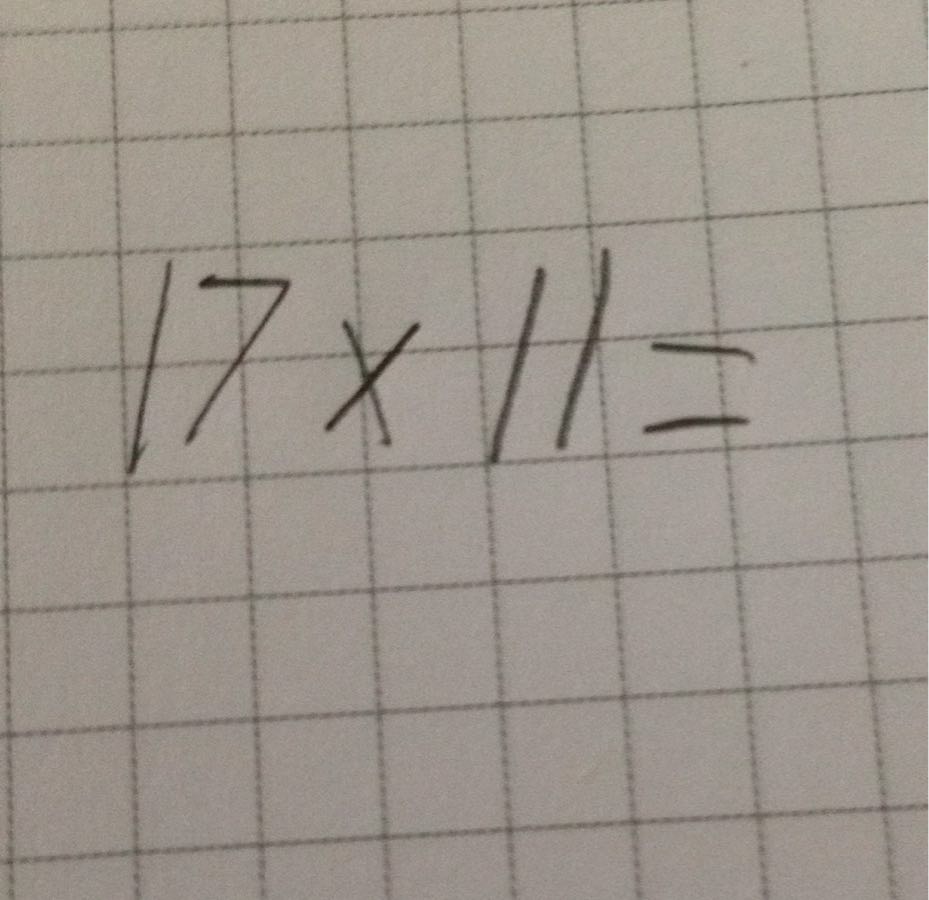 17 x 11 =